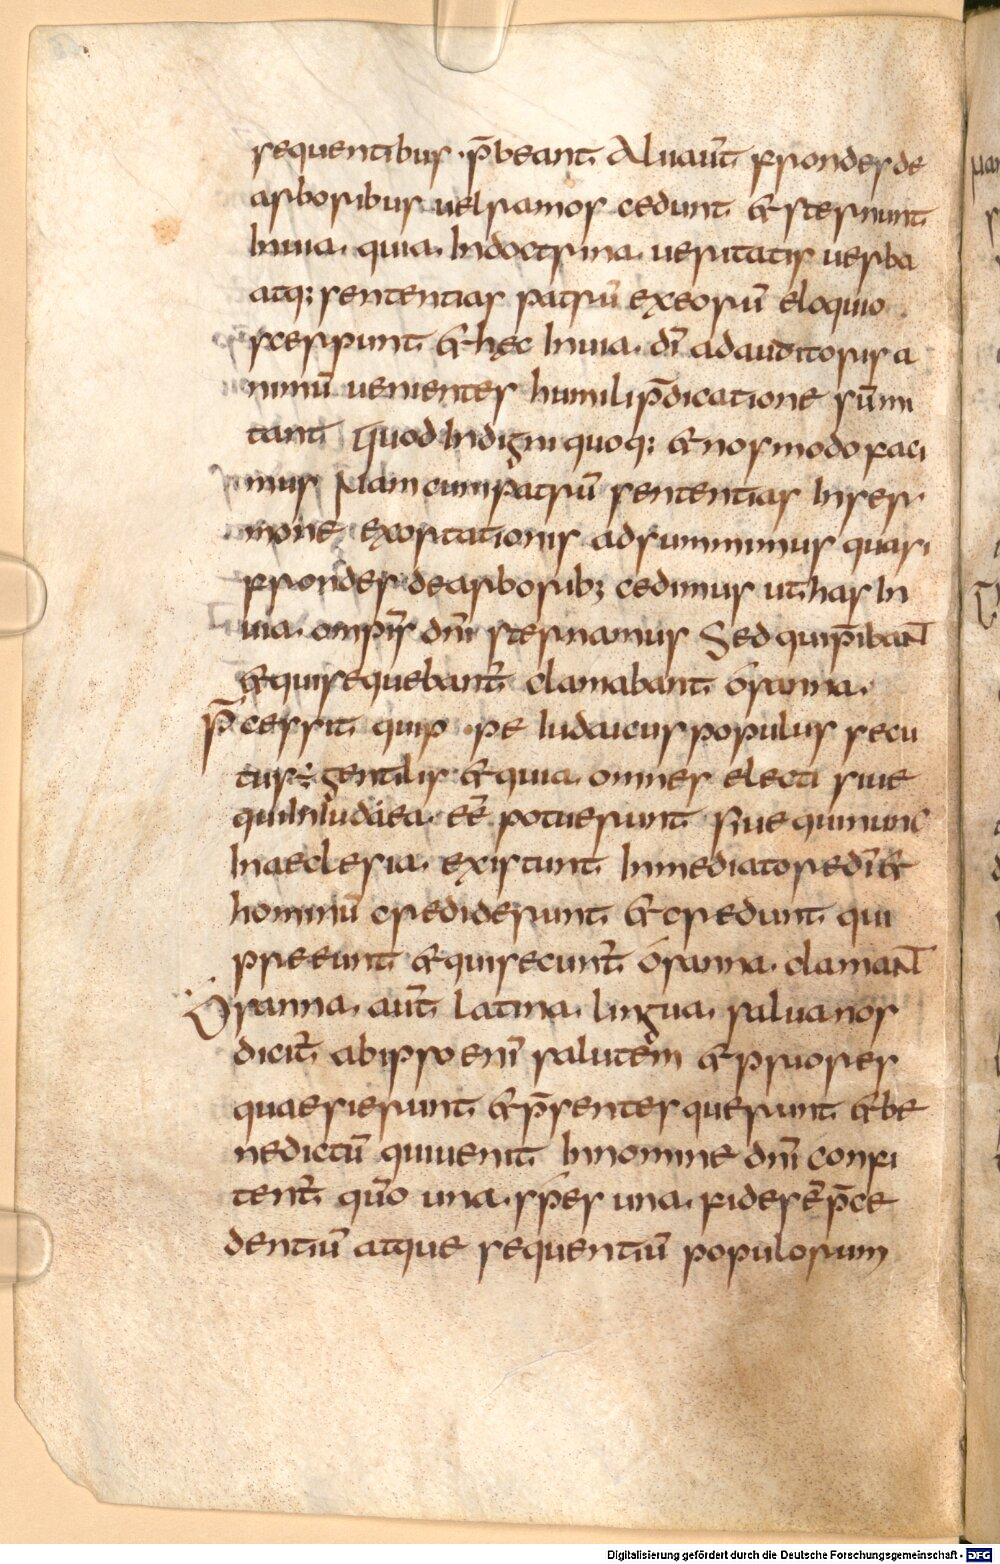 sequentibus · p̄beant Alii aut̄ frondes de
arboribus uel ramos cedunt & sternunt
In uia · quia · In doctrina · ueritatis uerba
atq; sententias patrū ex eorū eloquio ·
excerpunt & hęc In uia · dī ad auditoris a
nimū uenientes humili p̄dicatione sūmi
tant Quod Indigni quoq; & nos modo faci
mus Nam cum patrū sententias In ser
mone exortationis adsummimus quasi
frondes de arborib; cedimus ut has In
uia · omp̄ts dn̄i sternamus Sed qui p̄ibant
& qui sequebant̄ clamabant ósanna ·
p̄cessit quip · pe Iudaicus populus secu
tus ÷ gentilis & quia · omnes electi siue
qui In Iudáea · eē potuerunt siue qui nunc
In aeclesia · existunt In mediatore dī &
hominū crediderunt & credunt qui
preeunt & qui secunt̄ ósanna · clamant
Osanna · aut̄ Latina · lingua · salua nos
dicit̄ ab ipso enī salutem & priores
quaesierunt & p̄sentes querunt & be
nedictū qui uenit In nomine dn̄i confi
tent̄ qūo una · spes una · fides ē p̄ce
dentiū atque sequentiū populorum
Digitalisierung gefördert durch die Deutsche Forschungsgemeinschaft - DFG